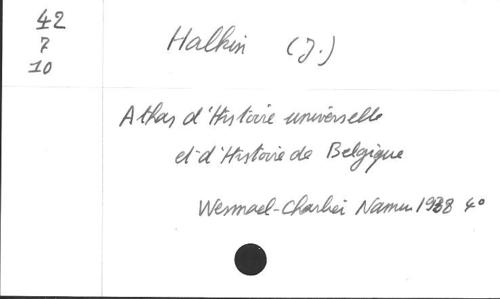 42
7
10
Halkin (J.)
Atlas d'Histoire universelle
et d'Histoire de Belgique
Wesmael-Charlier Namur 1938 4°